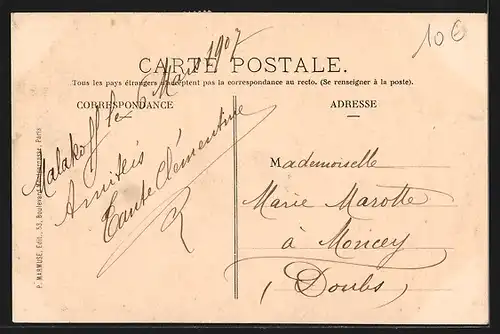 10€
CARTE POSTALE.
Tous les pays étrangers n'acceptent pas la correspondance au recto. (Se renseigner à la poste).
CORRESPONDANCE
Malakoff le 6 Mars 1907
Amitiés
Tante Clémentine
ADRESSE
Mademoiselle
Marie Marotte
à Moncey
(Doubs)
P. MARMUSE, Édit., 53, Boulevard Montparnasse, Paris